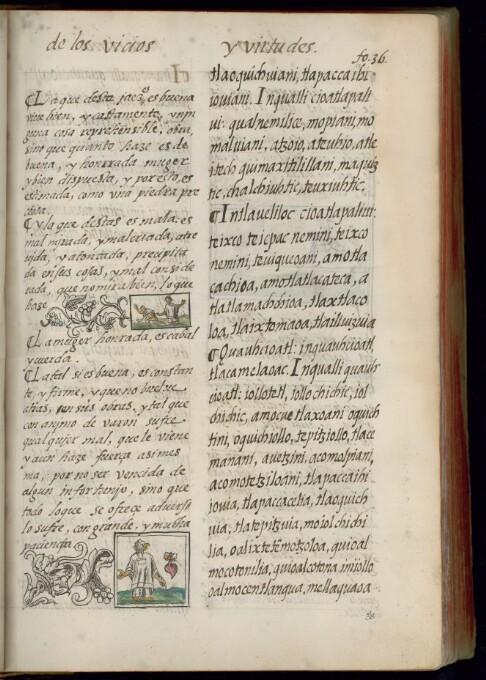 de los vicios
y virtudes.
fo. 36.
¶ La que desta jaez, es buena
viue bien, y castamente, y nin
guna cosa reprehensible, obra,
sino que quanto haze es de
buena, y honrrada muger
y bien dispuesta, y por esto, es
estimada, como vna piedra pre
ciosa.
¶ Y la que destas es mala: es
mal mirada, y mal criada, atre
uida, y atontada, precipita
da en sus cosas, y mal conside
rada, que no mira bien, lo que
haze.
¶ La muger honrada, es cabal
y cuerda.
¶ La tal si es buena, es constan
te, y firme, y que no buelue
atras, en sus obras, y tal que
con animo de varon sufre
qualquier mal, que le viene
y aun haze fuerça asi mes
ma, por no ser vencida de
algun infortunio, sino que
todo lo que se ofrece aduerso
lo sufre, con grande, y mucha
paciencia.
tlaoquichuiani, tlapaccaihi
iouiani. In qualli cioatlapali
ui: qualnemilice, mopiani, mo
malhuiani, atzoio, ateuhio, atle
itech quimaxitilillani, maquiz
tic, chalchiuhtic, teuxiuhtic,
¶ In tlaueliloc cioatlapaliui:
teixco teicpac nemini, teixco
nemini, teuiqueoani, amotla
cachioa, amotlatlacateca, a
tlatlamachhioa, tlaxtlaco
loa, tlaixtomaoa, tlailiuizuia
¶ Quauhcioatl: inquauhcioatl,
tlacamelaoac. In qualli quauh
cioatl: iollotetl, iollochichic, iol
chichic, amocuetlaxoani oquich
tini, oquichiollo, tepitziollo, tlace
manani, auetzini, acomolpiani,
acomotetziloani, tlapaccaihi
iouia, tlapaccacelia, tlaoquich
uia, tlatepitzuia, moiolchichi
lia, oalixtetemotzoloa, quioal
mocotonilia, quioalcotona iniiollo
oalmocentlanqua, mellaquaoa